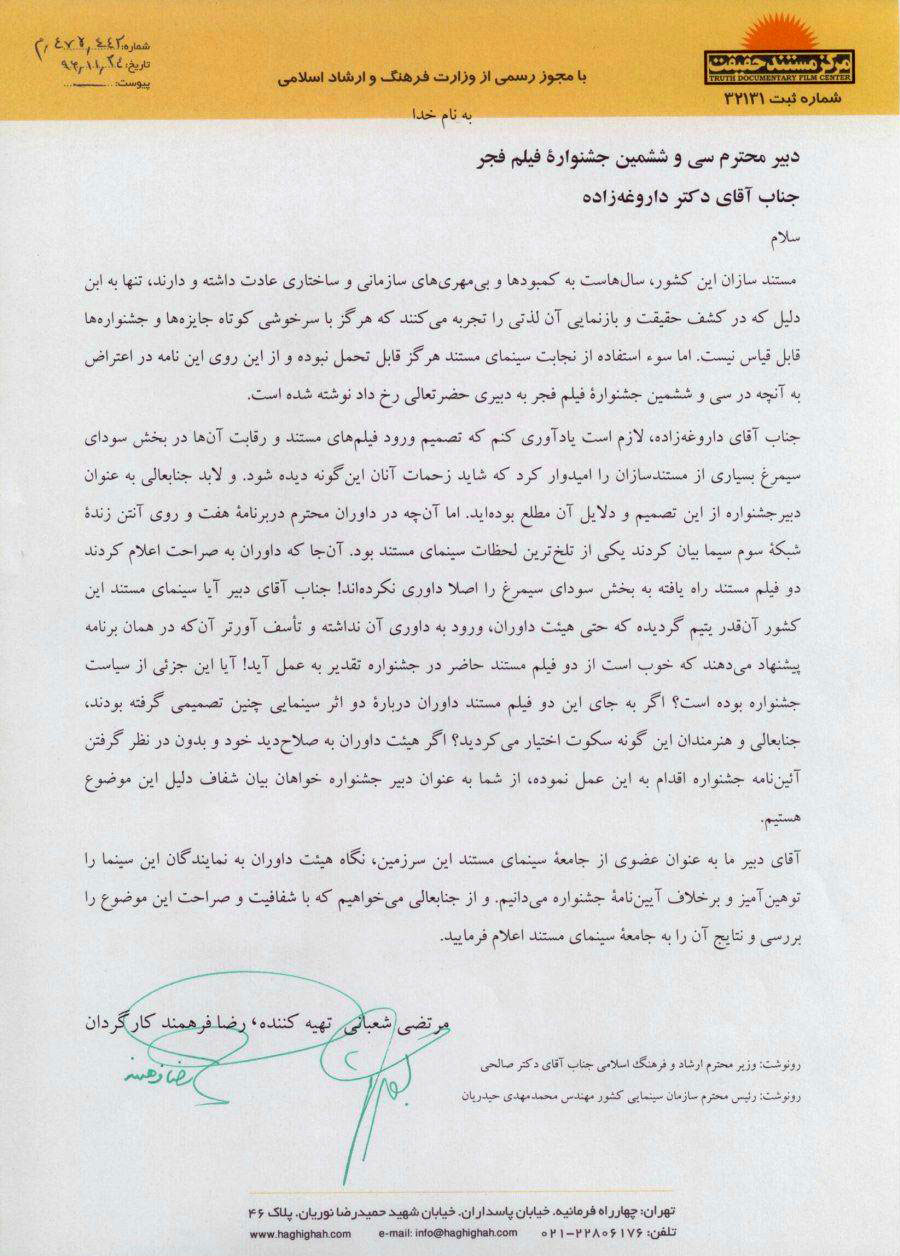 شماره: ۴۷۵,۴۴۲ م
تاریخ: ۹۶,۱۱,۲۴
پیوست:
با مجوز رسمی از وزارت فرهنگ و ارشاد اسلامی
مرکز مستند حقیقت
TRUTH DOCUMENTARY FILM CENTER
شماره ثبت ۳۲۱۳۱
به نام خدا
دبیر محترم سی و ششمین جشنوارهٔ فیلم فجر
جناب آقای دکتر داروغه‌زاده
سلام
مستند سازان این کشور، سال‌هاست به کمبودها و بی‌مهری‌های سازمانی و ساختاری عادت داشته و دارند، تنها به این
دلیل که در کشف حقیقت و بازنمایی آن لذتی را تجربه می‌کنند که هرگز با سرخوشی کوتاه جایزه‌ها و جشنواره‌ها
قابل قیاس نیست. اما سوء استفاده از نجابت سینمای مستند هرگز قابل تحمل نبوده و از این روی این نامه در اعتراض
به آنچه در سی و ششمین جشنوارهٔ فیلم فجر به دبیری حضرتعالی رخ داد نوشته شده است.
جناب آقای داروغه‌زاده، لازم است یادآوری کنم که تصمیم ورود فیلم‌های مستند و رقابت آن‌ها در بخش سودای
سیمرغ بسیاری از مستندسازان را امیدوار کرد که شاید زحمات آنان این‌گونه دیده شود. و لابد جنابعالی به عنوان
دبیرجشنواره از این تصمیم و دلایل آن مطلع بوده‌اید. اما آن‌چه در داوران محترم دربرنامهٔ هفت و روی آنتن زندهٔ
شبکهٔ سوم سیما بیان کردند یکی از تلخ‌ترین لحظات سینمای مستند بود. آن‌جا که داوران به صراحت اعلام کردند
دو فیلم مستند راه یافته به بخش سودای سیمرغ را اصلا داوری نکرده‌اند! جناب آقای دبیر آیا سینمای مستند این
کشور آن‌قدر یتیم گردیده که حتی هیئت داوران، ورود به داوری آن نداشته و تأسف آورتر آن‌که در همان برنامه
پیشنهاد می‌دهند که خوب است از دو فیلم مستند حاضر در جشنواره تقدیر به عمل آید! آیا این جزئی از سیاست
جشنواره بوده است؟ اگر به جای این دو فیلم مستند داوران دربارهٔ دو اثر سینمایی چنین تصمیمی گرفته بودند،
جنابعالی و هنرمندان این گونه سکوت اختیار می‌کردید؟ اگر هیئت داوران به صلاح‌دید خود و بدون در نظر گرفتن
آئین‌نامه جشنواره اقدام به این عمل نموده، از شما به عنوان دبیر جشنواره خواهان بیان شفاف دلیل این موضوع
هستیم.
آقای دبیر ما به عنوان عضوی از جامعهٔ سینمای مستند این سرزمین، نگاه هیئت داوران به نمایندگان این سینما را
توهین‌آمیز و برخلاف آیین‌نامهٔ جشنواره می‌دانیم. و از جنابعالی می‌خواهیم که با شفافیت و صراحت این موضوع را
بررسی و نتایج آن را به جامعهٔ سینمای مستند اعلام فرمایید.
مرتضی شعبانی تهیه کننده، رضا فرهمند کارگردان
رضا فرهمند
رونوشت: وزیر محترم ارشاد و فرهنگ اسلامی جناب آقای دکتر صالحی
رونوشت: رئیس محترم سازمان سینمایی کشور مهندس محمدمهدی حیدریان
تهران: چهارراه فرمانیه، خیابان پاسداران، خیابان شهید حمیدرضا نوریان، پلاک ۴۶
تلفن: ۰۲۱-۲۲۸۰۶۱۷۶ e-mail: info@haghighah.com www.haghighah.com